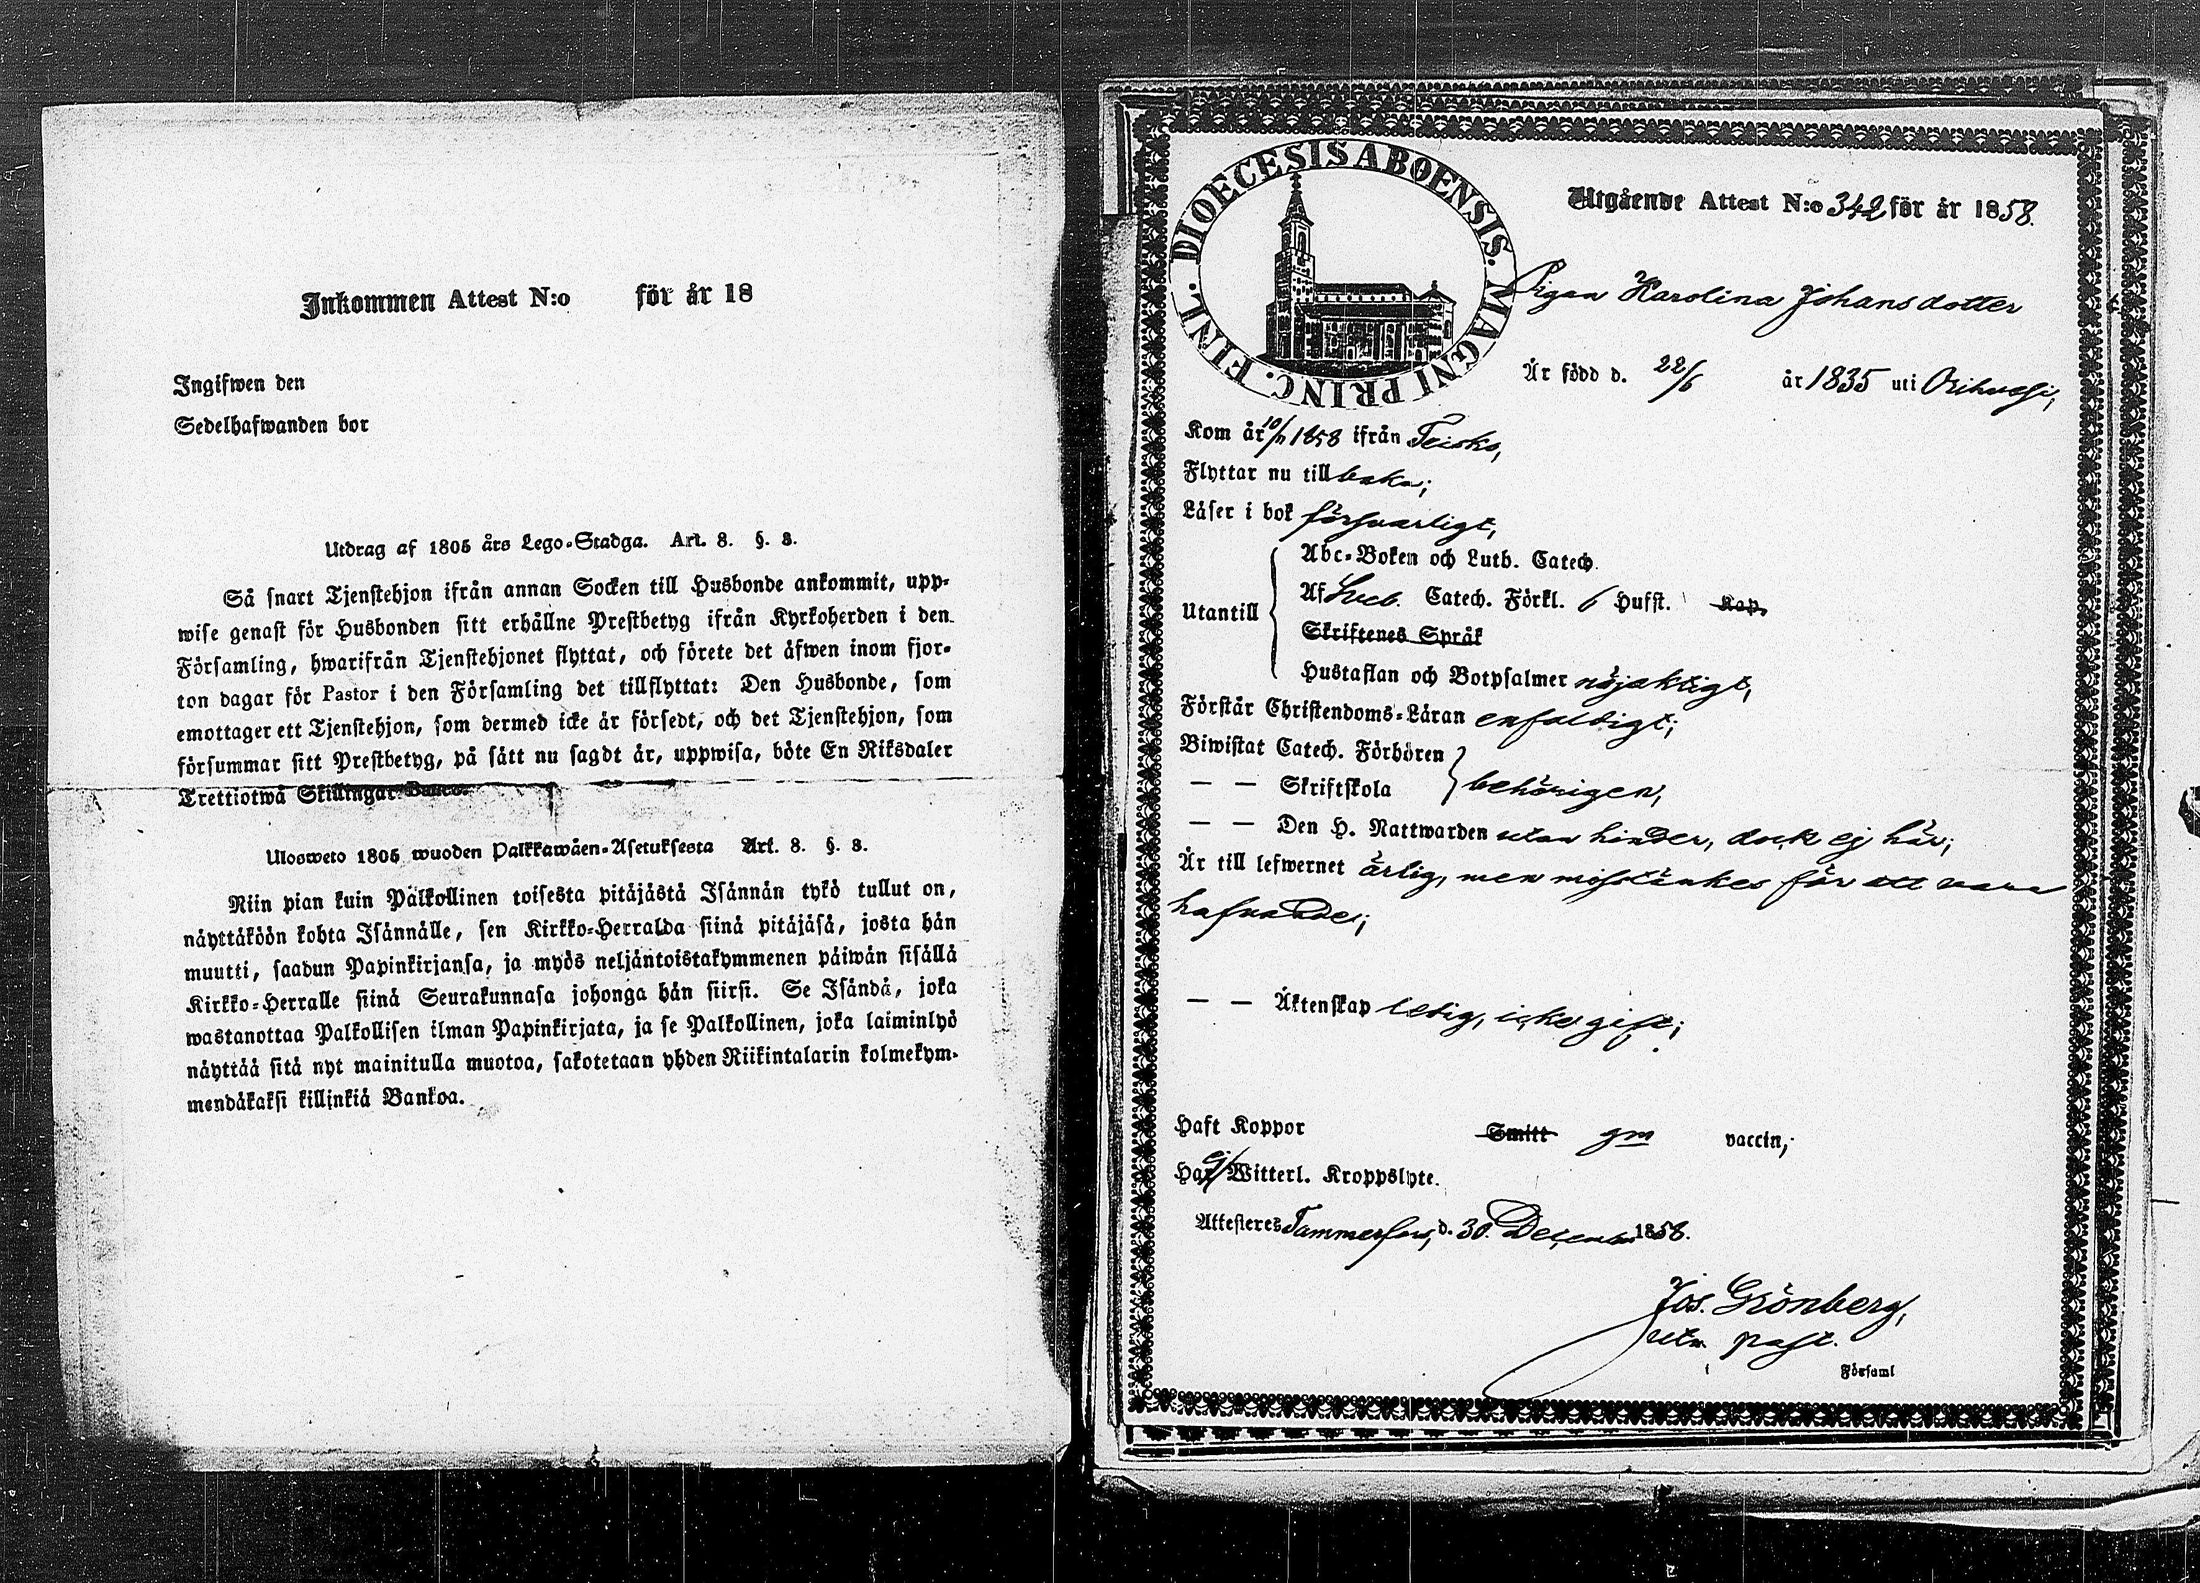 Inkommen Attest N:o för år 18
Ingifwen den
Sedelhafwanden bor
Utdrag af 1805 års Lego-Stadga. Art. 8. §. 3.
Så snart Tjenstehjon ifrån annan Socken till Husbonde ankommit, upp-
wise genast för Husbonden sitt erhållne Prestbetyg ifrån Kyrkoherden i den
Församling, hwarifrån Tjenstehjonet flyttat, och förete det äfwen inom fjor-
ton dagar för Pastor i den Församling det tillflyttat: Den Husbonde, som
emottager ett Tjenstehjon, som dermed icke är försedt, och det Tjenstehjon, som
försummar sitt Prestbetyg, på sätt nu sagdt är, uppwisa, böte En Riksdaler
Trettiotwå Skillingar Banco.
Ulosweto 1805 wuoden Palkkawäen-Asetuksesta Art. 8. §. 3.
Niin pian kuin Palkollinen toisesta pitäjästä Isännän tykö tullut on,
näyttäköön kohta Isännälle, sen Kirkko-Herralda siinä pitäjäsä, josta hän
muutti, saadun Papinkirjansa, ja myös neljäntoistakymmenen päiwän sisällä
Kirkko-Herralle siinä Seurakunnasa johonga hän siirsi. Se Isändä, joka
wastanottaa Palkollisen ilman Papinkirjata, ja se Palkollinen, joka laiminlyö
näyttää sitä nyt mainitulla muotoa, sakotetaan yhden Riikintalarin kolmekym-
mendäkaksi killinkiä Bankoa.
DIOECESIS ABOENSIS. MAGNI PRINC. FINL.
Utgående Attest N:o 342 för år 1858.
Pigan Karolina Johansdotter
Är född d. 22/6 år 1835 uti Orihvesi,
Kom år 10/11 1858 ifrån Teisko,
Flyttar nu tillbaka;
Läser i bok försvarligt,
Abc-Boken och Luth. Catech.
Utantill Af Sveb. Catech. Förkl. 6 Hufst. Kap.
Skriftenes Språk
Hustaflan och Botpsalmer nöjaktigt,
Förstår Christendoms-Läran enfaldigt;
Biwistat Catech. Förhören
— — Skriftskola behörigen,
— — Den H. Nattwarden utan hinder, dock ej här;
Är till lefwernet ärlig, men misstänkes för att vara
hafvande;
— — Äktenskap ledig, icke gift;
Haft Koppor Smitt gm vaccin;
Har ej Witterl. Kroppslyte.
Attesteres Tammerfors, d. 30. December 1858.
Jos. Grönberg,
past.
Församl